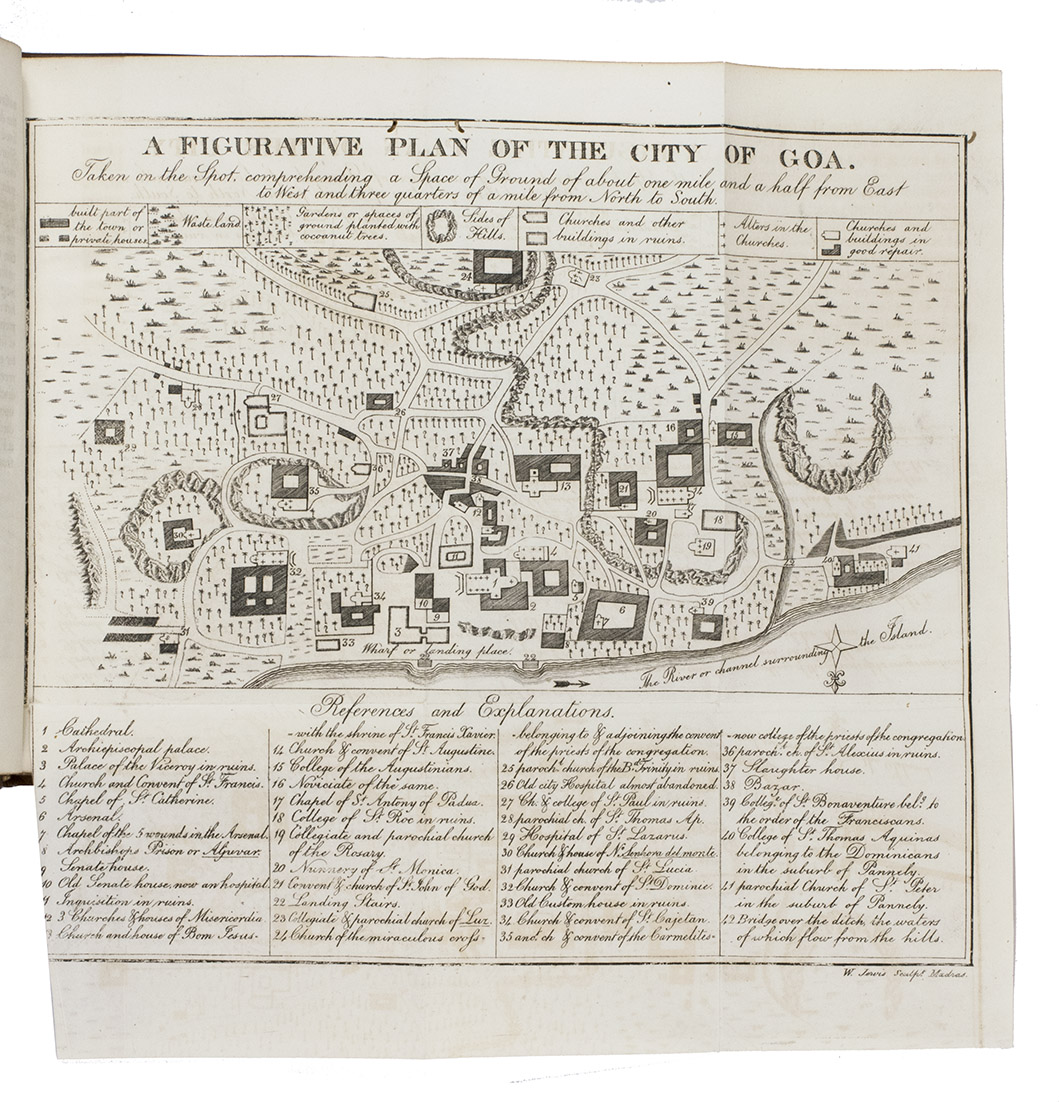 A FIGURATIVE PLAN OF THE CITY OF GOA.
Taken on the Spot, comprehending a Space of Ground of about one mile and a half from East
to West and three quarters of a mile from North to South.
built part of
the town or
private houses
Waste land
Gardens or spaces of
ground planted with
cocoanut trees.
Sides of
Hills.
Churches and other
buildings in ruins.
Alters in the
Churches.
Churches and
buildings in
good repair.
24
23
25
27
26
28
29
16
15
37
36
13
35
21
14
12
20
18
30
19
11
4
41
32
1
5
34
10
2
6
39
9
31
33
3
8
Wharf or landing place.
22
22
The River or channel surrounding the Island.
References and Explanations.
1 Cathedral.
2 Archiepiscopal palace.
3 Palace of the Viceroy in ruins.
4 Church and Convent of St. Francis.
5 Chapel of St. Catherine.
6 Arsenal.
7 Chapel of the 5 wounds in the Arsenal.
8 Archbishops Prison or Aljuvar.
9 Senate house.
10 Old Senate house, now an hospital.
11 Inquisition in ruins.
12 3 Churches & houses of Misericordia
13 Church and house of Bom Jesus-
-with the shrine of St. Francis Xavier
14 Church & convent of St. Augustine.
15 College of the Augustinians.
16 Noviciate of the same.
17 Chapel of St. Antony of Padua.
18 College of St. Roc in ruins.
19 Collegiate and parochial church
of the Rosary.
20 Nunnery of St. Monica.
21 Convent & church of St. John of God.
22 Landing Stairs.
23 Collegiate & parochial church of Luz.
24 Church of the miraculous cross-
-belonging to & adjoining the convent
of the priests of the congregation.
25 paroch. church of the Bd. Trinity in ruins.
26 Old city Hospital almost abandoned.
27 Ch. & college of St. Paul in ruins.
28 parochial ch. of St. Thomas Ap.
29 Hospital of St. Lazarus.
30 Church & house of Na. Senhora del monte.
31 parochial church of St. Lucia
32 Church & convent of St. Dominic.
33 Old Custom house in ruins.
34 Church & convent of St. Cajetan.
35 and ch & convent of the Carmelites-
-now college of the priests of the congregation
36 paroch. ch. of St. Alexius in ruins.
37 Slaughter house.
38 Bazar.
39 College of St. Bonaventure bel. to
the order of the Franciscans.
40 College of St. Thomas Aquinas
belonging to the Dominicans
in the suburb of Pannely.
41 parochial Church of St. Peter
in the suburb of Pannely.
42 Bridge over the ditch, the waters
of which flow from the hills.
W. Jervis Sculpt. Madras.